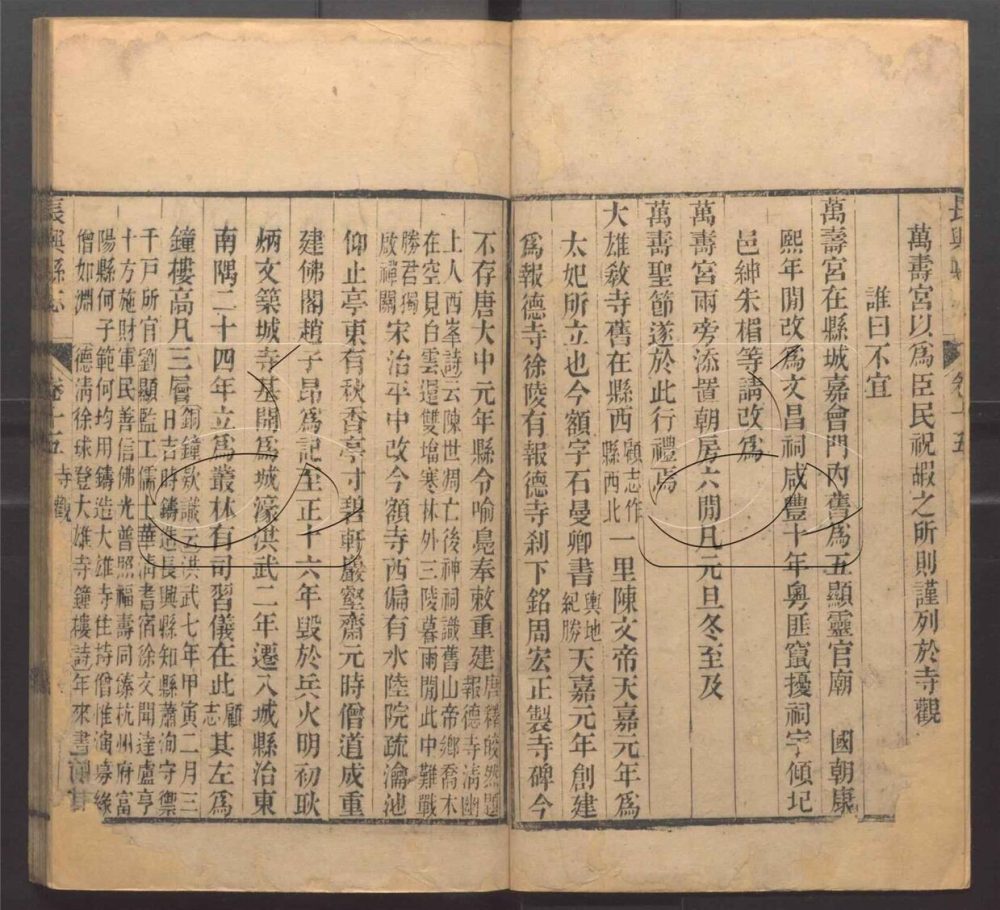 萬壽宮以爲臣民祝嘏之所則謹列於寺觀
誰曰不宜
萬壽宮在縣城嘉會門內舊爲五顯靈官廟　國朝康
熙年閒改爲文昌祠咸豐十年粵匪竄擾祠宇傾圮
邑紳朱楣等請改爲
萬壽宮兩旁添置朝房六閒凡元旦冬至及
萬壽聖節遂於此行禮焉
大雄敎寺舊在縣西顧志作縣西北一里陳文帝天嘉元年爲
太妃所立也今額字石曼卿書輿地紀勝天嘉元年創建
爲報德寺徐陵有報德寺刹下銘周宏正製寺碑今
不存唐大中元年縣令喻鳧奉敕重建唐釋皎然題報德寺淸幽
上人西峯詩云陳世凋亡後神祠識舊山帝鄉喬木
在空見白雲還雙墖寒林外三陵暮雨閒此中難戰
勝君獨啟禪關宋治平中改今額寺西偏有水陸院疏瀹池
仰止亭東有秋香亭寸碧軒嚴壑齋元時僧道成重
建佛閣趙子昂爲記至正十六年毀於兵火明初耿
炳文築城寺基開爲城濠洪武二年遷入城縣治東
南隅二十四年立爲叢林有司習儀在此顧志其左爲
鐘樓高凡三層銅鐘欵識云洪武七年甲寅二月三日吉時鑄造長興縣知縣蕭洵守禦
千戸所官劉顯監工儒士華淸書宿徐文聞達盧亨
十方施財軍民善信佛光普照福壽同臻杭州府富
陽縣何子範何均用鑄造大雄寺住持僧惟演募緣
僧如淵　德淸徐球登大雄寺鐘樓詩年來書
長興縣志
卷十五　寺觀